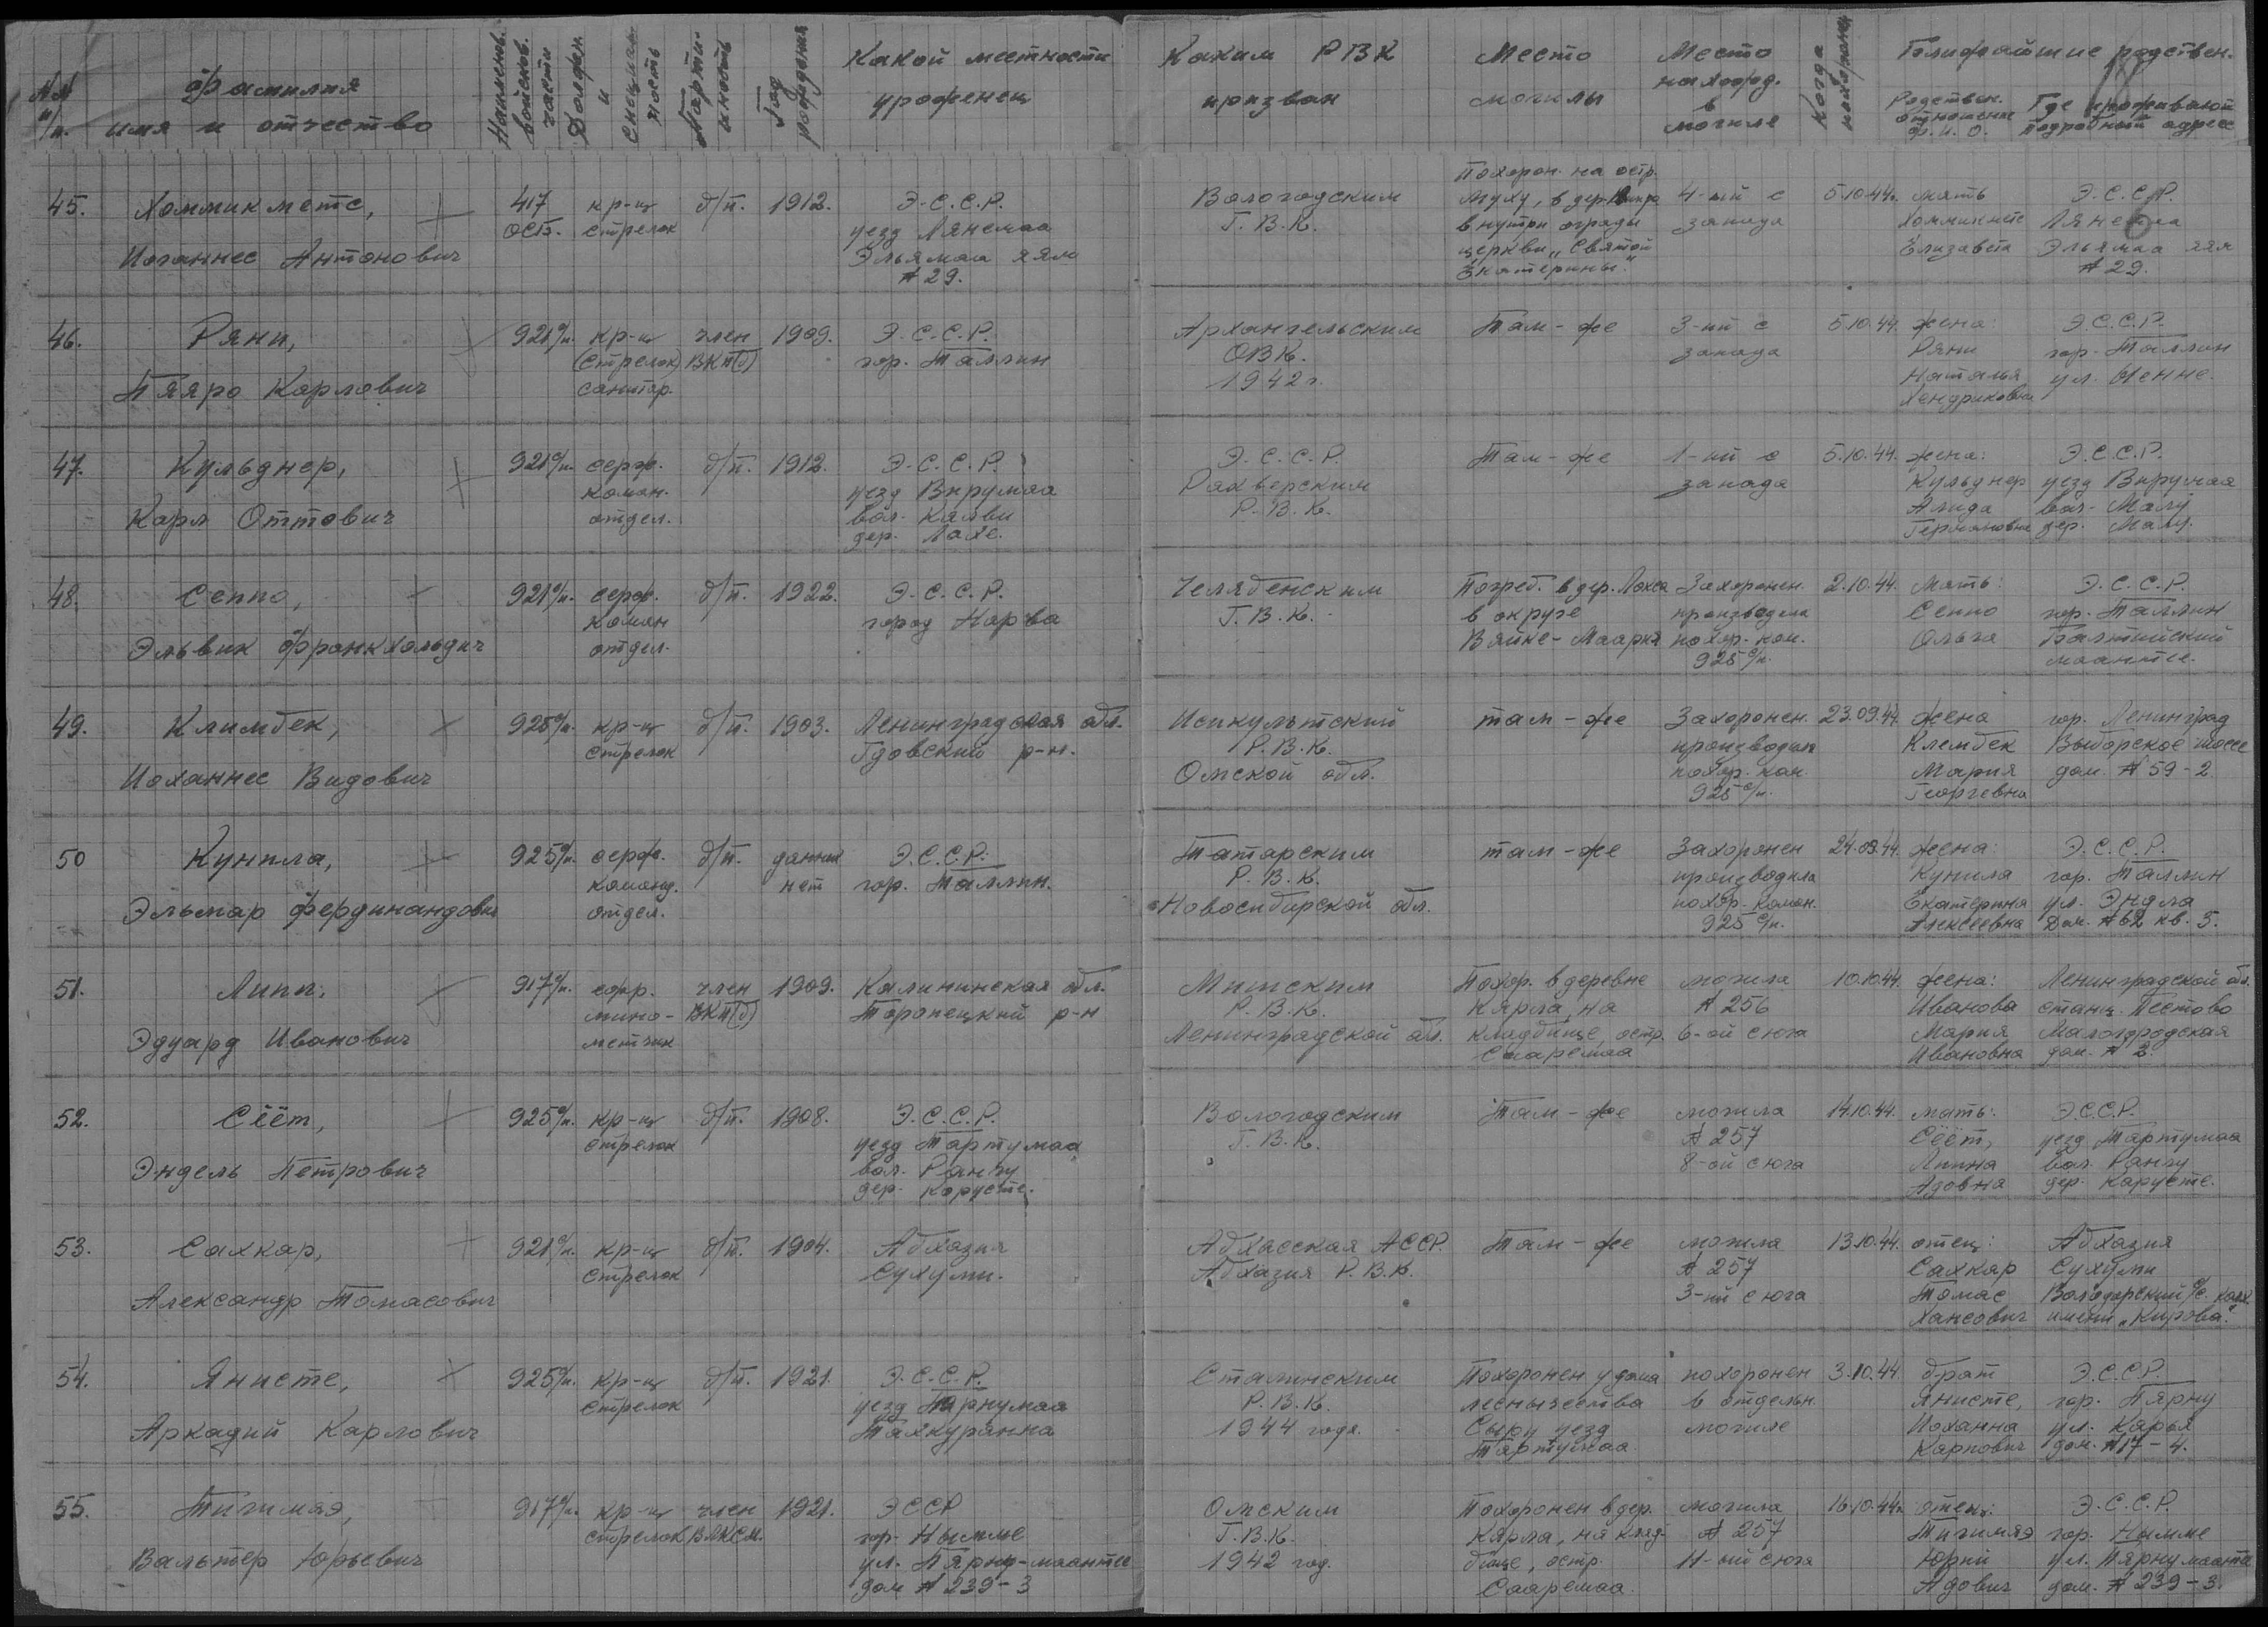 №№ п/п.
Фамилия имя и отчество
Наименов. войсков. части
Должн. и специальность
Партийность
Год рождения
Какой местности уроженец
Каким РВК призван
Место могилы
Место наход. в могиле
Когда похоронен
Ближайшие родствен.
Родствен. отношение Ф.И.О.
Где проживают подробный адрес
45. Хоммик метс, 417 кр-ц б/п. 1912. Э.С.С.Р. Вологодским Похорон. на остр. 4-ый с 5.10.44г. мать Э.С.С.Р.
Иоганнес Антонович ОСБ. стрелок уезд Лянемаа Г.В.К. Муху, в дер. запада Хоммикметс Лянемаа
Эльямаа яям внутри ограды Елизавета Эльямаа яям
№ 29. церкви „Святой № 29.
Екатерины."
46. Ряни, 921 с/п. кр-ц член 1909. Э.С.С.Р. Архангельским Там-же 3-ий с 5.10.44. жена: Э.С.С.Р.
(стрелок) ВКП(б) гор. Таллин ОВК. запада Ряни гор. Таллин
Пяяро Карлович санитар. 1942 г. Наталья ул.
Хендриковна
47. Кульднер, 921 с/п. серж. б/п. 1912. Э.С.С.Р. Э.С.С.Р. Там-же 1-ый с 5.10.44. жена: Э.С.С.Р.
коман. уезд Вирумаа Раквереским запада Кульднер уезд Вирумаа
Карл Оттович отдел. вол. Калви Р.В.К. Алида вол. Малу
дер. Лахе. Германовна дер. Малу.
48. Сеппо, 921 с/п. серж. б/п. 1922. Э.С.С.Р. Челябенским Погреб. в дер. Локса Захоронен. 2.10.44. Мать: Э.С.С.Р.
коман город Нарва Г.В.К. в округе производила Сеппо гор. Таллин
Эльвик Франкхольдич отдел. Вяйке-Маарья похор. ком. Ольга Балтийский
925 с/п. маантее.
49. Климбек, 925 с/п. кр-ц б/п. 1903. Ленинградская обл. Исикультский там-же Захоронен. 23.09.44. жена гор. Ленинград
стрелок Гдовский р-н. Р.В.К. производил Клембек Выборское шоссе
Иоханнес Видович Омской обл. похор. ком. Мария дом. № 59-2
925 с/п. Георгевна
50 Кунила, 925 с/п. серж. б/п. данных Э.С.С.Р. Татарским там-же Захоронен 24.09.44. жена: Э.С.С.Р.
команд. нет гор. Таллин. Р.В.К. производила Кунила гор. Таллин
Эльмар Фердинандович отдел. Новосибирской обл. похор. коман. Екатерина ул. Эндла
925 с/п. Алексеевна Дом. № 62 кв. 5.
51. Липп, 917 с/п. ефр. член 1909. Калининская обл. Мгинским Похор. в деревне могила 10.10.44. жена: Ленинградской обл.
мино- ВКП(б) Торопецкий р-н Р.В.К. Кярла, на № 256 Иванова станц. Пестово
Эдуард Иванович метчик Ленинградской обл. кладбище, остр. 6-ой с юга Мария
Сааремаа Ивановна дом. № 2.
52. Сёёт, 925 с/п. кр-ц б/п. 1908. Э.С.С.Р. Вологодским Там-же могила 14.10.44. мать: Э.С.С.Р.
стрелок уезд Тартумаа Г.В.К. № 257 Сёёт, уезд Тартумаа
Эндель Петрович вол. Рангу 8-ой с юга Лиина вол. Рангу
дер. Корусте. Адовна дер. Карусте.
53. Сахкар, 921 с/п. кр-ц б/п. 1904. Абхазия Абхасская АССР. Там-же могила 13.10.44. отец: Абхазия
стрелок Сухуми. Абхазия Р.В.К. № 257 Сахкар Сухуми
Александр Томасович 3-ий с юга Томас Володарский с/с. колх.
Хансович имени „Кирова".
54. Янисте, 925 с/п. кр-ц б/п. 1921. Э.С.С.Р. Сталинским Похоронен у дома похоронен 3.10.44. брат Э.С.С.Р.
стрелок уезд Пярнумаа Р.В.К. лесничества в отдельн. Янисте, гор. Пярну
Аркадий Карлович Тахкуранна 1944 года. Сыру уезд могиле Иоханна ул. Карья
Тартумаа Карлович дом. № 17-4.
55. Тигимяэ, 917 с/п. кр-ц член 1921. ЭССР Омским Похоронен в дер. могила 16.10.44г. отец: Э.С.С.Р.
стрелок ВЛКСМ. гор. Нымме Г.В.К. Кярла, на клад- № 257 Тигимяэ гор. Нымме
Вальтер Юрьевич ул. Пярну-маантее 1942 год. бище, остр. 11-ый с юга Юрий ул. Пярну маантее
дом № 239-3 Сааремаа. Адович дом. № 239-3.